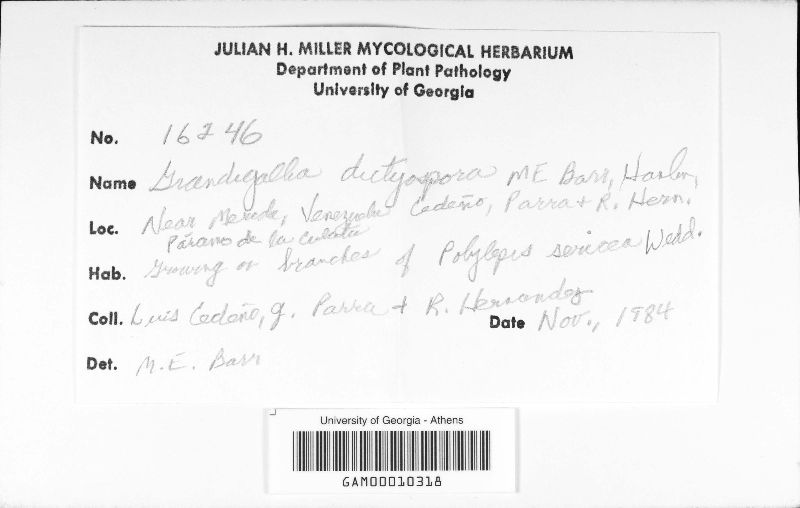 JULIAN H. MILLER MYCOLOGICAL HERBARIUM
Department of Plant Pathology
University of Georgia
No. 16246
Name Grandigallia dictyospora ME Barr, Hanlin,
Cedeño, Parra + R. Hern.
Loc. Near Merida, Venezuela
Páramo de la Culata
Hab. Growing on branches of Polylepis sericea Wedd.
Coll. Luis Cedeño, J. Parra + R. Hernandez
Date Nov., 1984
Det. M.E. Barr
University of Georgia - Athens
GAM00010318